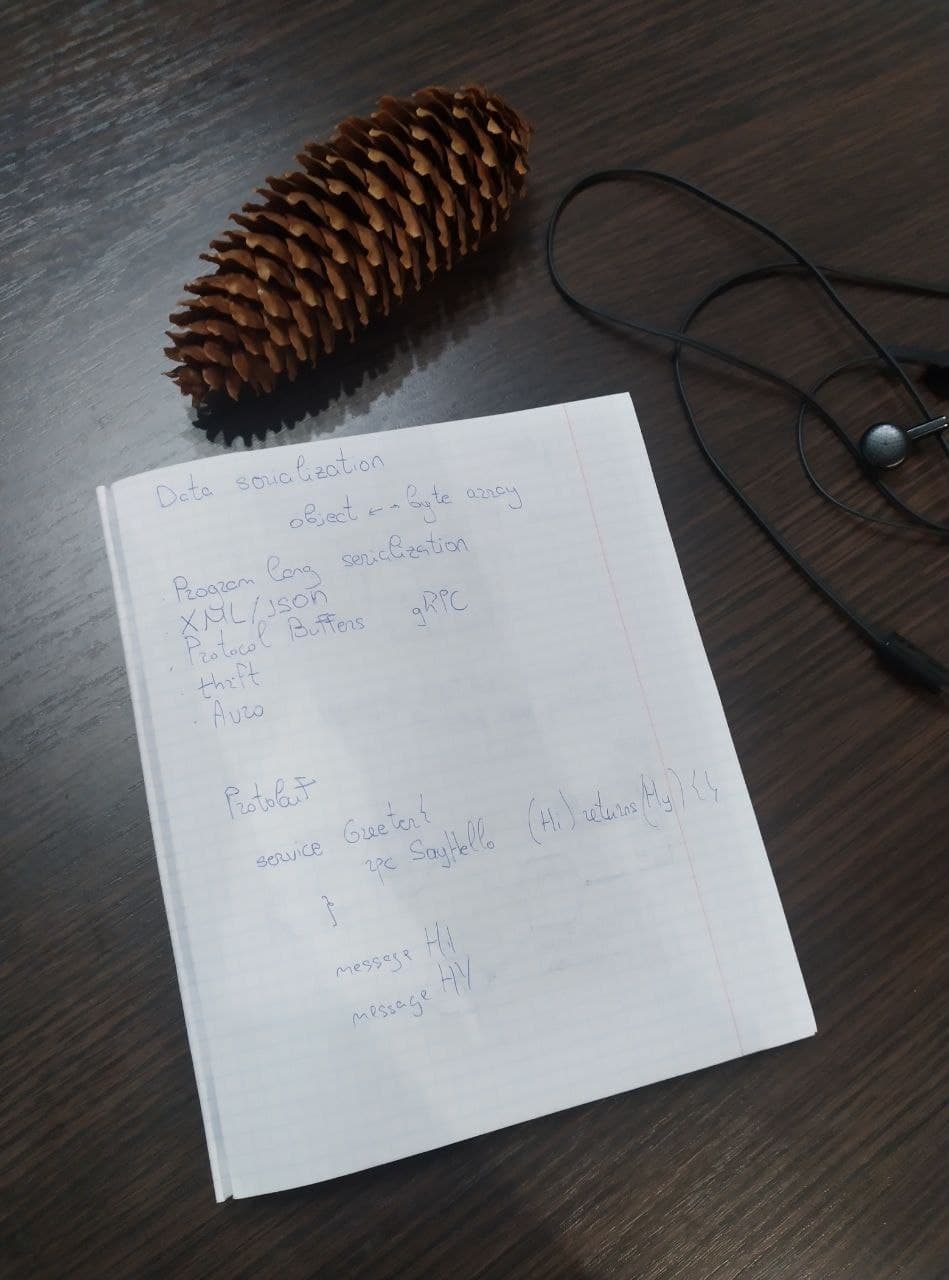 Data serialization
object ← → byte array
. Program lang serialization
. XML/JSON
. Protocol Buffers gRPC
. thrift
. Avro
Protobuf
service Greeter{
rpc SayHello (Hi) returns (Hy) {}
}
message Hi
message HY